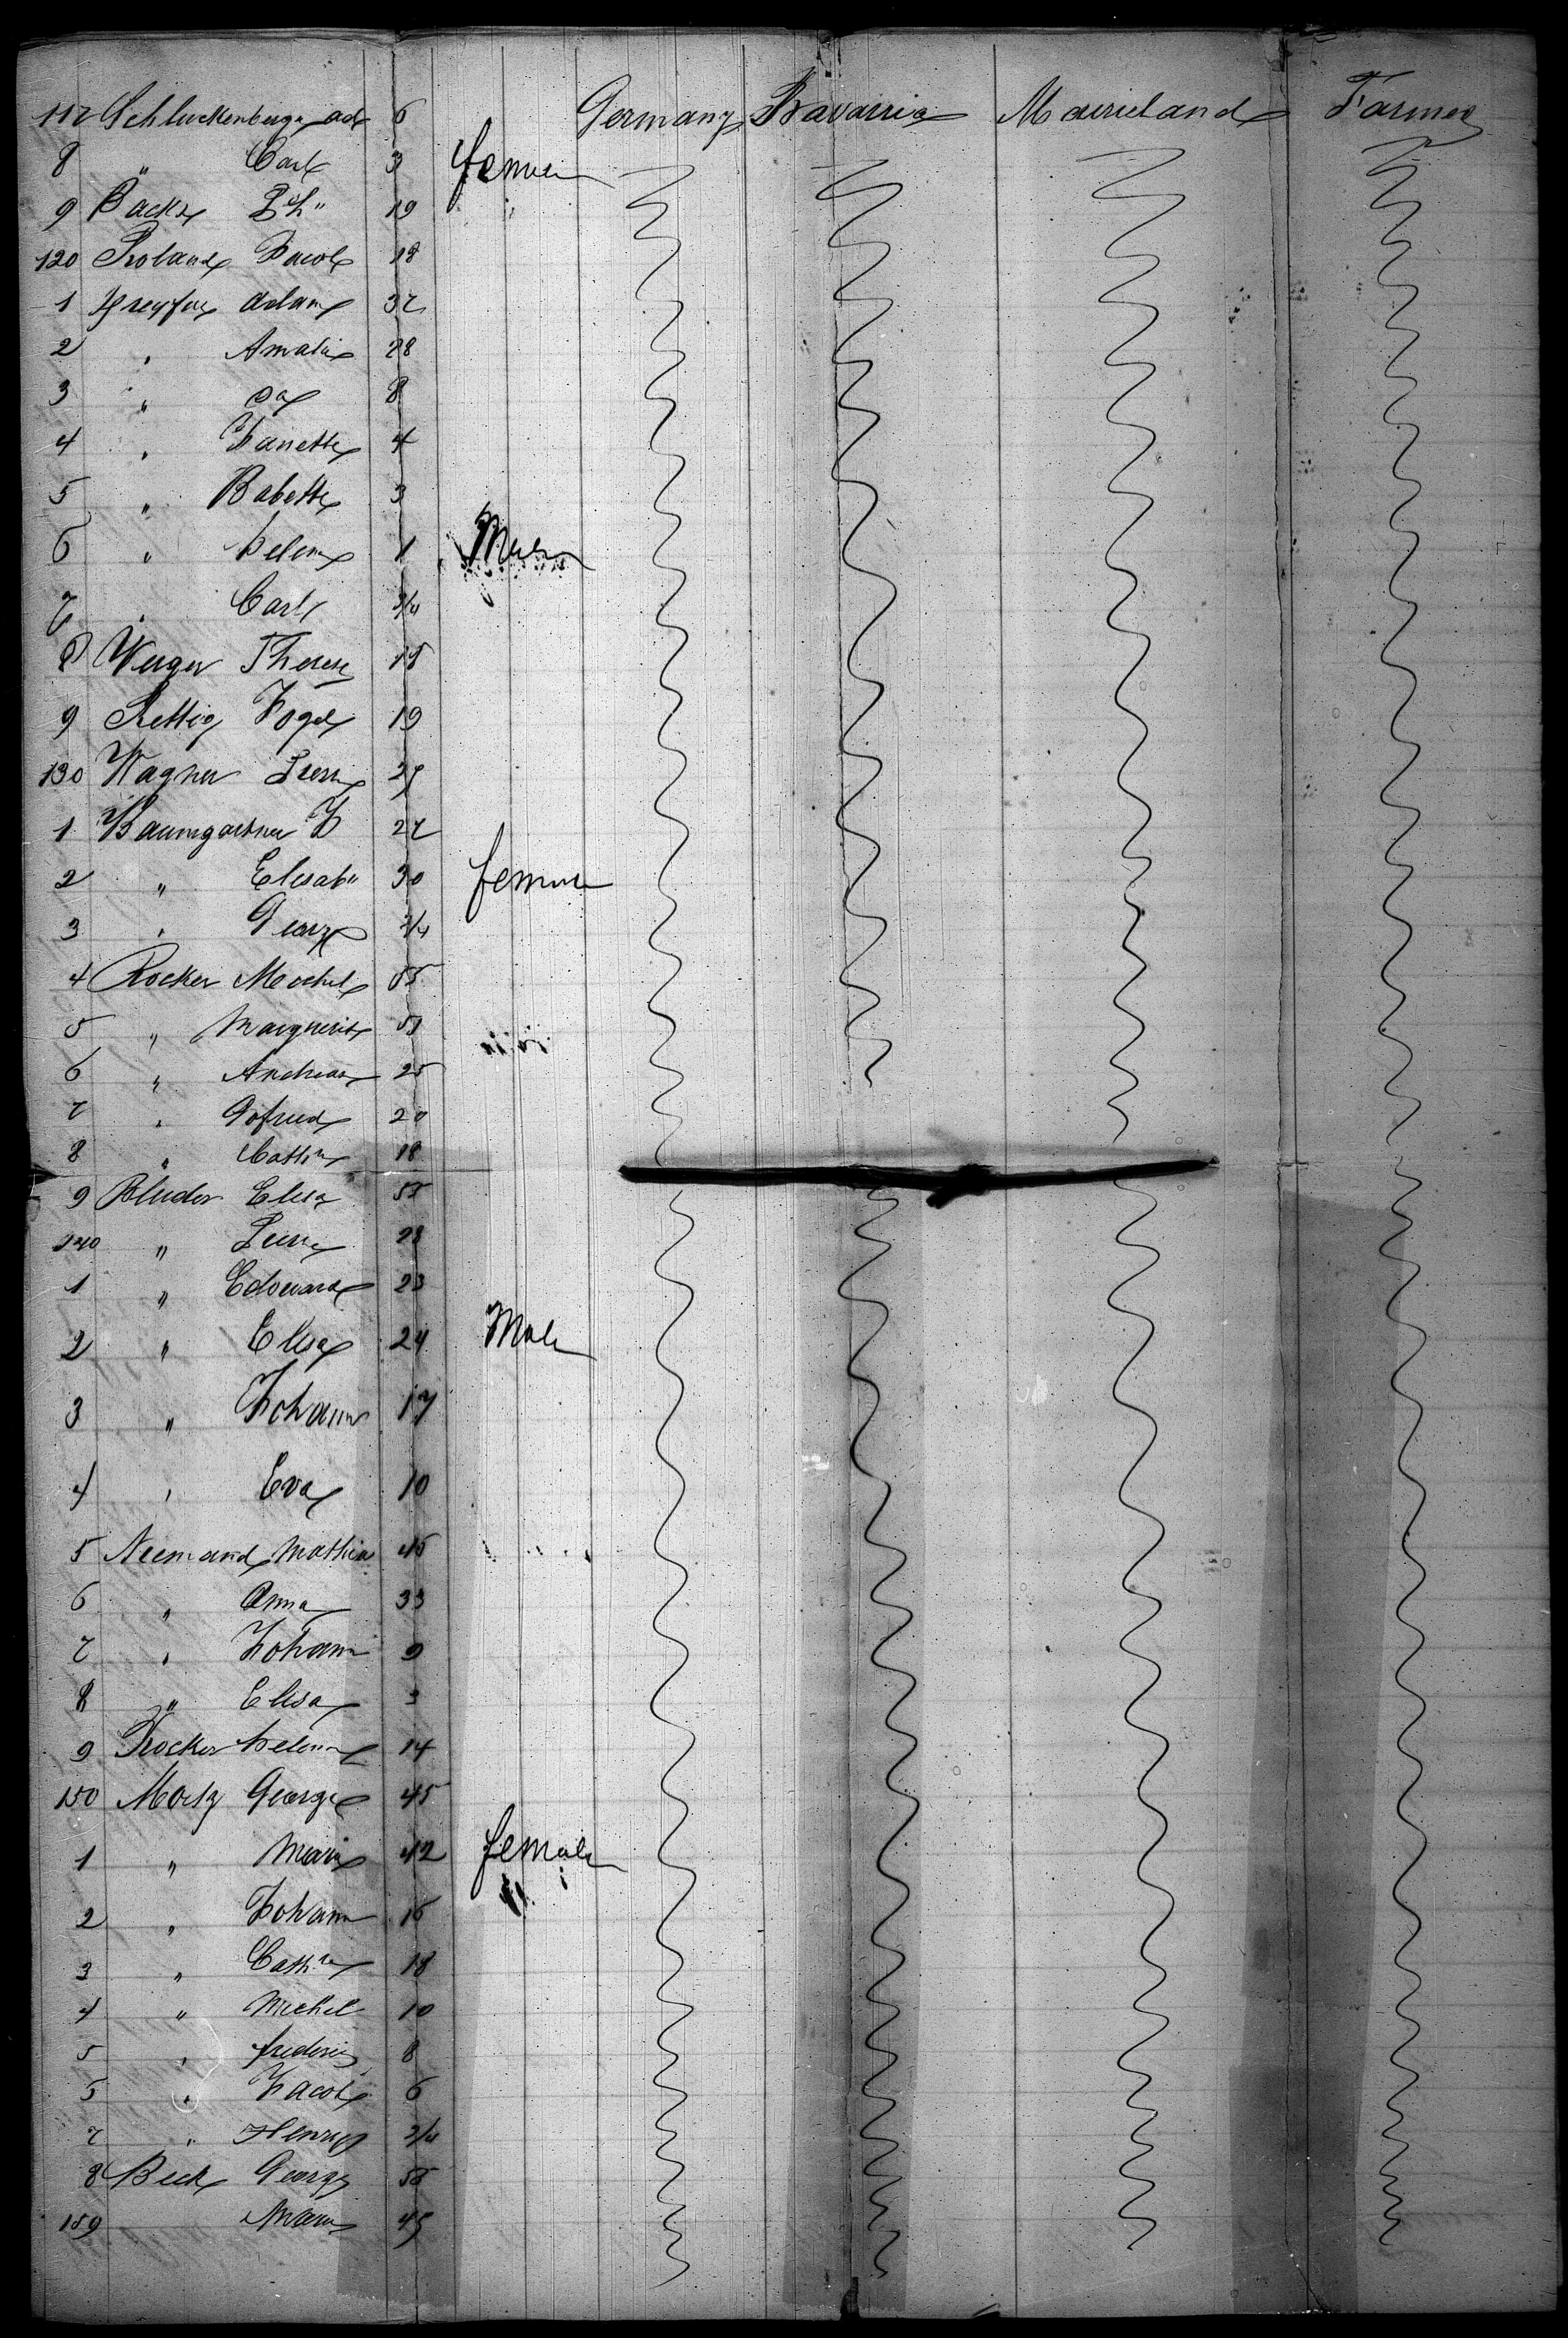 117 Schluckenberger ad 6 Germany Bavarria Marieland Farmer
8 " Carl 3 female
9 Backe Ph" 19
120 Roland Jacob 18
1 Greyfus Adam 32
2 " Amalie 28
3 " 8
4 " Janette 4
5 " Babette 3
6 " Helena 1 Male
7 " Carl 3/4
8 Werger Therese 18
9 Rettig 19
130 Wagner 29
1 Baumgartner J 27
2 " Elisab" 30 female
3 " George 3/4
4 Rocker Michel 55
5 " Marguerite 51
6 " Andreas 25
7 " Gofried 20
8 " Cathne 18
9 Blinder Elisa 55
140 " 28
1 " Edouard 23
2 " Elisa 24 Male
3 " Johann 17
4 " Eva 10
5 Niemand Mathias 45
6 " Anna 33
7 " Johann 9
8 " Elisa 3
9 Rocker Helena 14
150 Motz George 45
1 " Marie 42 female
2 " Johann 16
3 " Cathne 18
4 " Michel 10
5 " frederic 8
5 " Jacob 6
7 " Henry 3/4
8 Beck George 58
159 Marie 45